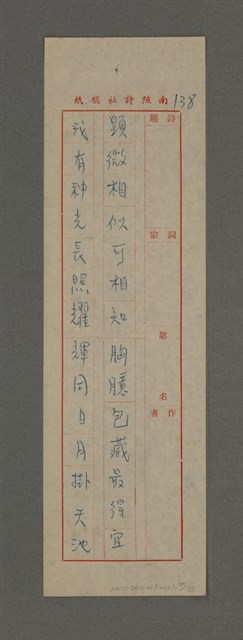 南陔詩社稿紙
138
詩題
詞宗
第 名
作者
顕微相似可相知胸臆包藏最得宜
我有神光長照耀輝同日月掛天池